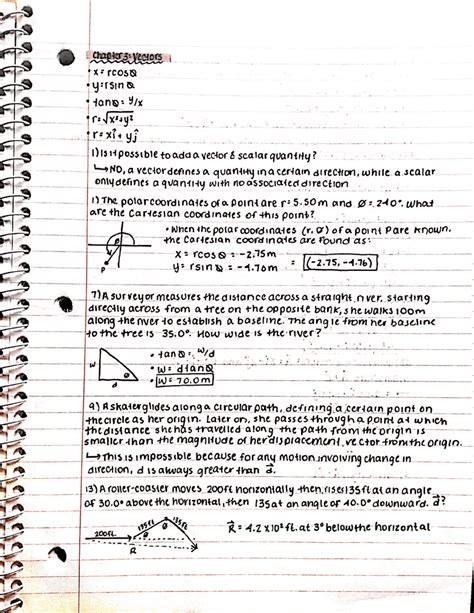 Chapter 3: Vectors
• x = rcosθ
• y = rsinθ
tanθ = y/x
• r = √x²+y²
• r = xî + yĵ
1) Is it possible to add a vector & scalar quantity?
↳ NO, a vector defines a quantity in a certain direction, while a scalar
only defines a quantity with no associated direction
1) The polar coordinates of a point are r = 5.50m and θ = 240°. What
are the Cartesian coordinates of this point?
• When the polar coordinates (r, θ) of a point P are known,
the Cartesian coordinates are found as:
x = rcosθ = -2.75m
y = rsinθ = -4.76m = (-2.75, -4.76)
θ
P
7) A surveyor measures the distance across a straight river, starting
directly across from a tree on the opposite bank, she walks 100m
along the river to establish a baseline. The angle from her baseline
to the tree is 35.0°. How wide is the river?
• tanθ = w/d
• w = dtanθ
• w = 70.0m
w
θ
d
9) A skater glides along a circular path, defining a certain point on
the circle as her origin. Later on, she passes through a point at which
the distance she has travelled along the path from the origin is
smaller than the magnitude of her displacement vector from the origin.
↳ This is impossible because for any motion involving change in
direction, d is always greater than d⃗.
13) A roller-coaster moves 200ft horizontally then rises 135ft at an angle
of 30.0° above the horizontal, then 135 at an angle of 40.0° downward. d⃗?
135ft 135ft
R⃗ = 4.2 x 10² ft. at 3° below the horizontal
200ft.
θ θ
R